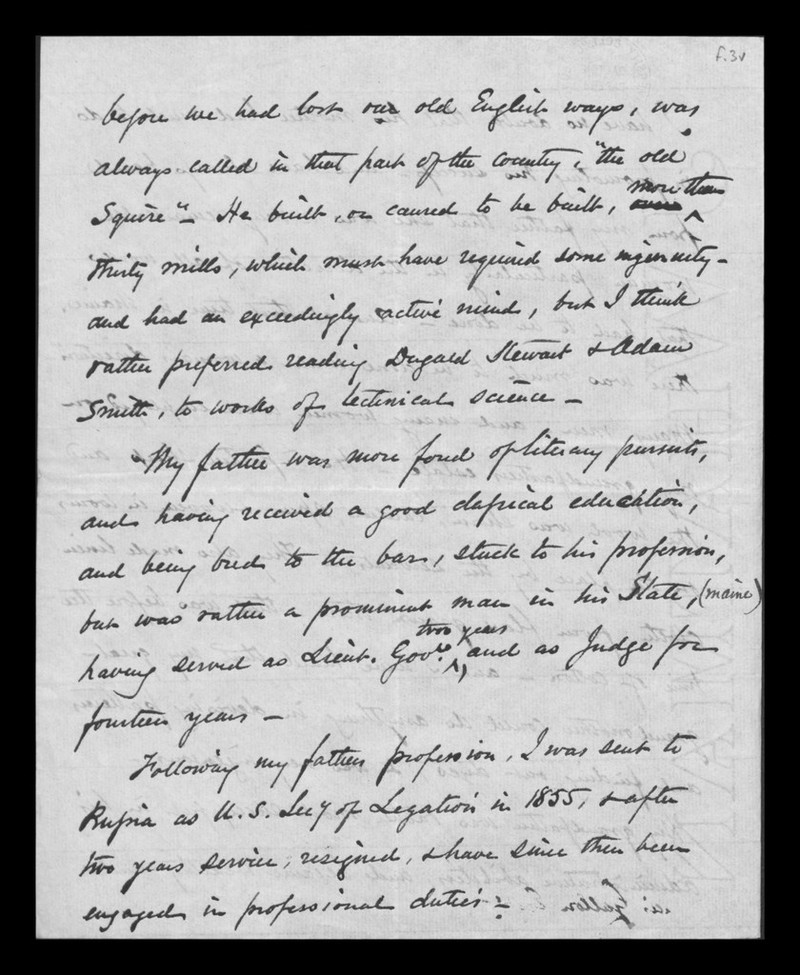 f.3v
before we had lost our old English ways, was
always called in that part of the country, "the old
Squire" – He built, or caused to be built, more than
thirty mills, which must have required some ingenuity –
and had an exceedingly active mind, but I think
rather preferred reading Dugald Stewart & Adam
Smith, to works of technical science –
My father was more fond of literary pursuits,
and having received a good classical education,
and being bred to the bar, stuck to his profession,
but was rather a prominent man in his State, (Maine)
having served as Lieut. Govr. two years, and as Judge for
fourteen years –
Following my fathers profession, I was sent to
Russia as U.S. Secy of Legation in 1855, & after
two years service, resigned, & have since then been
engaged in professional duties –